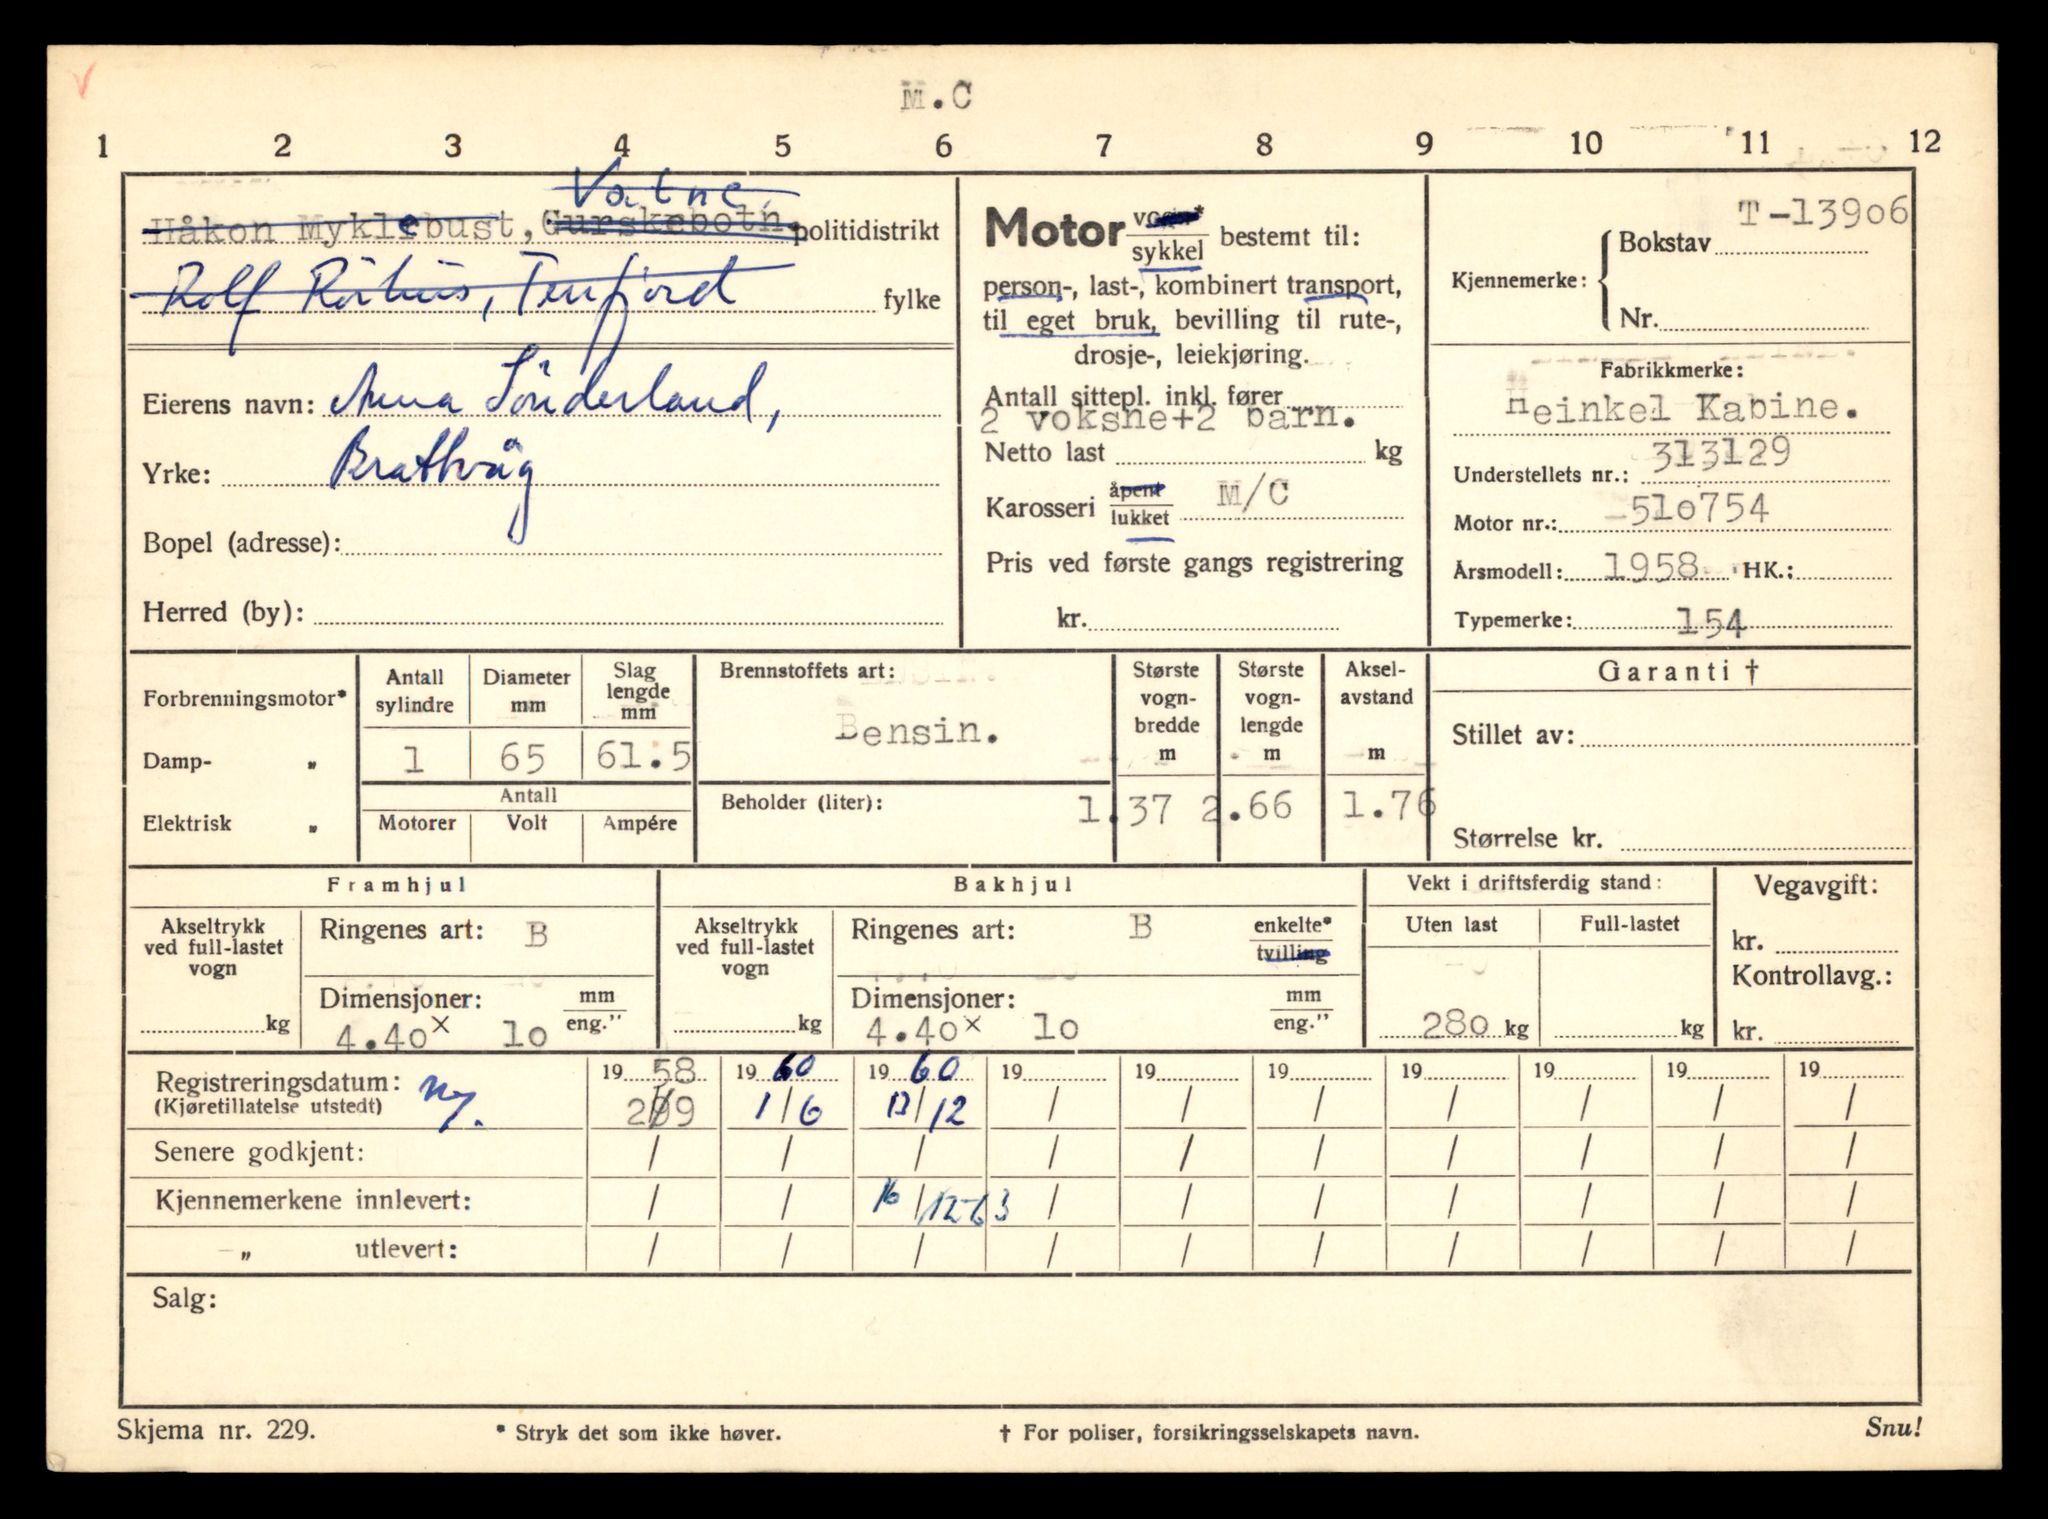 M.C
1 2 3 4 5 6 7 8 9 10 11 12
Vatne,
Håkon Myklebust, Gurskebotn. politidistrikt
Rolf Rörhus, Tenfjord fylke
Eierens navn: Anna Sönderland,
Yrke: Brattvåg
Bopel (adresse):
Herred (by):
Motor vogn*
sykkel bestemt til:
person-, last-, kombinert transport,
til eget bruk, bevilling til rute-,
drosje-, leiekjøring.
Antall sittepl. inkl. fører
2 voksne+2 barn.
Netto last kg
Karosseri åpent
lukket M/C
Pris ved første gangs registrering
kr.
T-13906
Kjennemerke: Bokstav
Nr.
Fabrikkmerke:
Heinkel Kabine.
Understellets nr.: 313129
Motor nr.: 510754
Årsmodell: 1958 HK.:
Typemerke: 154
Forbrenningsmotor*
Damp- „
Elektrisk „
Antall sylindre
Diameter mm
Slag lengde mm
1 65 61.5
Antall
Motorer Volt Ampére
Brennstoffets art:
Bensin.
Beholder (liter):
Største vogn-bredde m
Største vogn-lengde m
Aksel-avstand m
1.37 2.66 1.76
Garanti †
Stillet av:
Størrelse kr.
Framhjul
Akseltrykk
ved full-lastet
vogn
kg
Ringenes art: B
Dimensjoner: mm
eng.”
4.40x 10
Bakhjul
Akseltrykk
ved full-lastet
vogn
kg
Ringenes art: B enkelte*
tvilling
Dimensjoner: mm
eng.”
4.40x 10
Vekt i driftsferdig stand:
Uten last Full-lastet
280 kg kg
Vegavgift:
kr.
Kontrollavg.:
kr.
Registreringsdatum: ny. 19 58 19 60 19 60 19 19 19 19 19 19 19
(Kjøretillatelse utstedt) 2/9 1/6 13/12 / / / / / / /
Senere godkjent: / / / / / / / / / /
Kjennemerkene innlevert: / / 16/12-63 / / / / / / /
–„ utlevert: / / / / / / / / / /
Salg:
Skjema nr. 229. * Stryk det som ikke høver. † For poliser, forsikringsselskapets navn. Snu!